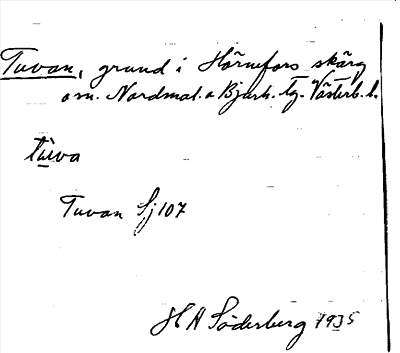 Tuvan, grund i Hörnefors skärg
om. Nordmal. o Bjurh. tg. Västerb. l.
tu̱va
Tuvan Sj 107
H A Söderberg 1935